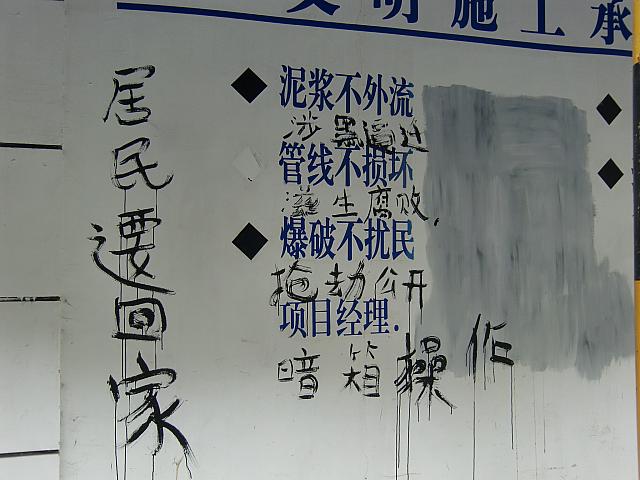 文明施工承
居民要回家
泥浆不外流
涉黑逼迁
管线不损坏
滋生腐败,
爆破不扰民
抢劫公开
项目经理.
暗箱操作